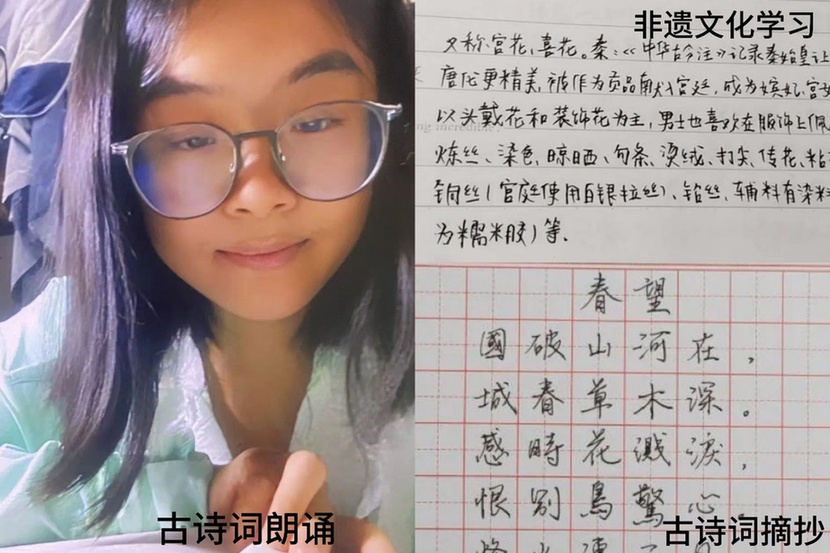 非遗文化学习
又称宫花、喜花。秦:《中华古今注》记录秦始皇让
唐代更精美,被作为贡品献入宫廷,成为嫔妃、宫女
以头戴花和装饰花为主,男士也喜欢在服饰上佩
炼丝、染色、晾晒、勾条、烫绒、打尖、传花、粘
铜丝(宫庭使用白银拉丝)、铅丝、辅料有染料
为糯米胶)等.
春望
國破山河在,
城春草木深。
感時花濺淚,
恨别鳥驚心。
古诗词朗诵
古诗词摘抄